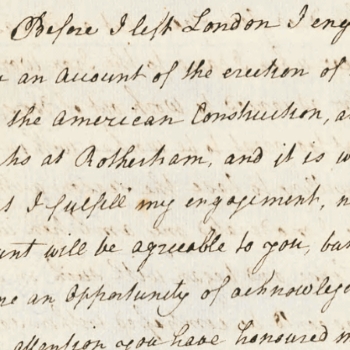 Before I left London I eng
an account of the erection of
the American Construction, a
ks at Rotherham, and it is w
I fulfill my engagement, n
unt will be agreeable to you, but
me an Opportunity of acknowledg
attention you have honoured m